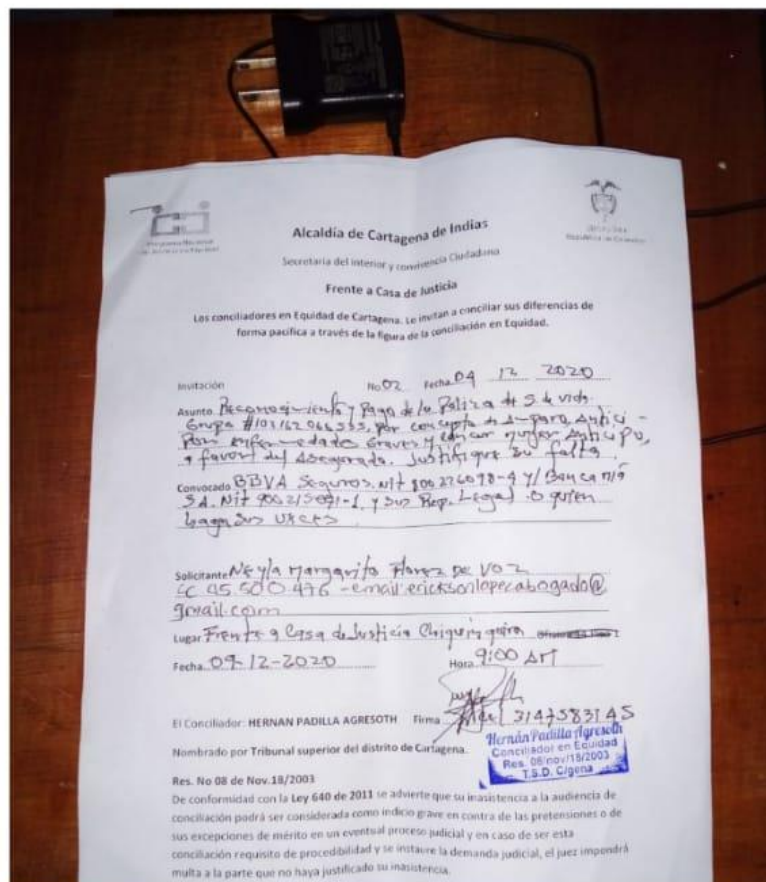 Programa Nacional
Alcaldía de Cartagena de Indias
República de Colombia
Secretaria del interior y convivencia Ciudadana
Frente a Casa de Justicia
Los conciliadores en Equidad de Cartagena. Le invitan a conciliar sus diferencias de
forma pacifica a través de la figura de la conciliación en Equidad.
Invitación No 02 Fecha 04 12 2020
Asunto Reconocimiento y Pago de la Poliza de S. de vida
Grupo por concepto de Amparo, Antici-
Por enfermedades Graves y cancer mujer Anticipo,
a favor del Asegurado. Justifique su falta
Convocado BBVA Seguros. Nit 800226098-4 y/
S.A. Nit y sus Rep. Legal o quien
haga sus veces
Solicitante Neyla Margarita Florez De Voz
CC 45.500.476 - email: ericksonlopecabogado@
gmail.com
Lugar Frente a Casa de Justicia Chiquinquira
Fecha 09-12-2020 Hora 9:00 AM
El Conciliador: HERNAN PADILLA AGRESOTH Firma 3147583145
Nombrado por Tribunal superior del distrito de Cartagena.
Hernán Padilla Agresoth
Conciliador en Equidad
Res. 08/nov/18/2003
T.S.D. C/gena
Res. No 08 de Nov.18/2003
De conformidad con la Ley 640 de 2011 se advierte que su inasistencia a la audiencia de
conciliación podrá ser considerada como indicio grave en contra de las pretensiones o de
sus excepciones de mérito en un eventual proceso judicial y en caso de ser esta
conciliación requisito de procedibilidad y se instaure la demanda judicial, el juez impondrá
multa a la parte que no haya justificado su inasistencia.